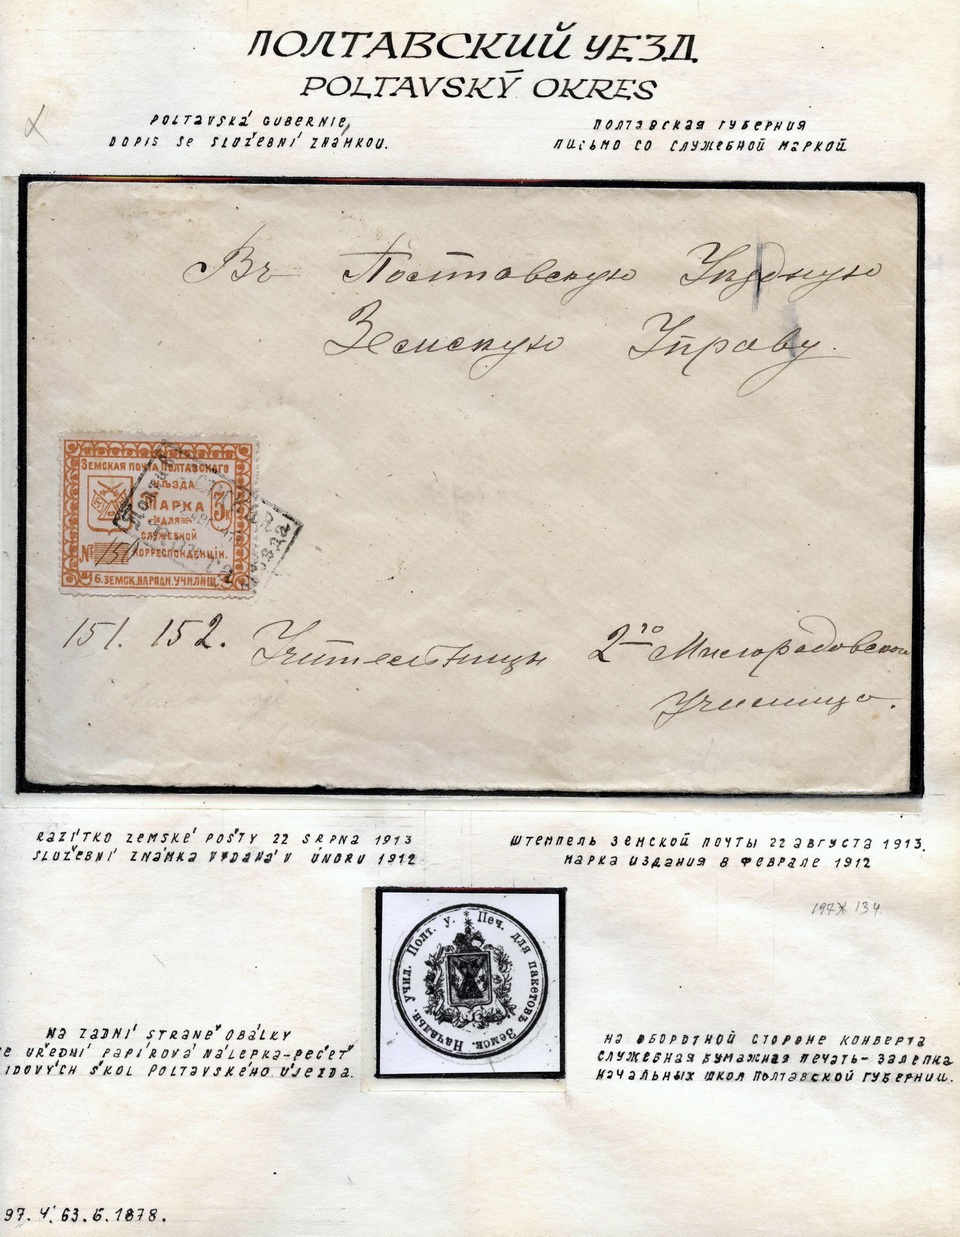 ПОЛТАВСКИЙ УЕЗД
POLTAVSKÝ OKRES
POLTAVSKÁ GUBERNIE,
DOPIS SE SLUŽEBNÍ ZNÁMKOU.
ПОЛТАВСКАЯ ГУБЕРНИЯ
ПИСЬМО СО СЛУЖЕБНОЙ МАРКОЙ
Въ Полтавскую Уѣздную
Земскую Управу.
ЗЕМСКАЯ ПОЧТА ПОЛТАВСКАГО
УѢЗДА
МАРКА
3 К
ДЛЯ
СЛУЖЕБНОЙ
№ 151 КОРРЕСПОНДЕНЦІИ.
б. ЗЕМСК. НАРОДН. УЧИЛИЩ.
151. 152. Учительницы 2го
училища.
RAZÍTKO ZEMSKÉ POŠTY 22 SRPNA 1913
SLUŽEBNÍ ZNÁMKA VYDANÁ V ÚNORU 1912
ШТЕМПЕЛЬ ЗЕМСКОЙ ПОЧТЫ 22 АВГУСТА 1913.
МАРКА ИЗДАНИЯ В ФЕВРАЛЕ 1912
134
Печ. для пакетовъ Земск. Начальн. учил. Полт. у.
NA ZADNÍ STRANĚ OBÁLKY
JE UŘEDNÍ PAPÍROVÁ NÁLEPKA-PEČEŤ
IDOVÝCH ŠKOL POLTAVSKÉHO UJEZDA.
НА ОБОРОТНОЙ СТОРОНЕ КОНВЕРТА
СЛУЖЕБНАЯ БУМАЖНАЯ ПЕЧАТЬ- ЗАЛЕПКА
НАЧАЛЬНЫХ ШКОЛ ПОЛТАВСКОЙ ГУБЕРНИИ.
97. Ч. 63. Б. 1878.